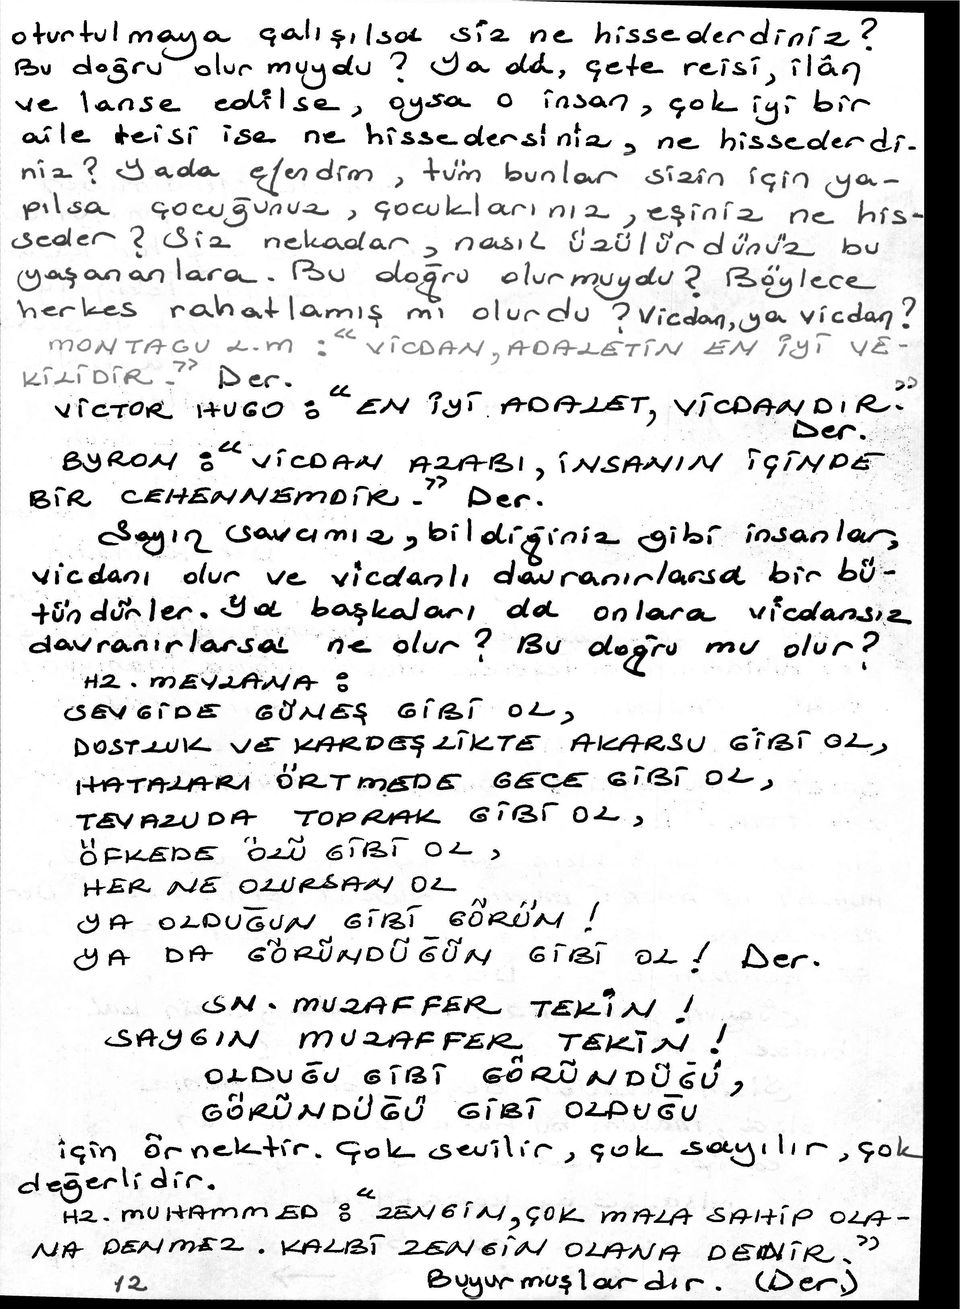 oturtulmaya çalışılsa siz ne hissederdiniz?
Bu doğru olur muydu? Ya da, çete reisi, ilân
ve lanse edilse, oysa o insan, çok iyi bir
aile reisi ise ne hissedersiniz, ne hissederdi-
niz? Yada efendim, tüm bunlar sizin için ya-
pılsa çocuğunuz, çocuklarınız, eşiniz ne his-
seder? Siz nekadar, nasıl üzülürdünüz bu
yaşananlara. Bu doğru olurmuydu? Böylece
herkes rahatlamış mı olurdu? Vicdan, ya vicdan?
MONTAGU L.M : "VİCDAN, ADALETİN EN İYİ VE-
KİLİDİR." Der.
VİCTOR HUGO : "EN İYİ ADALET, VİCDANDIR."
Der.
BYRON : "VİCDAN AZABI, İNSANIN İÇİNDE
BİR CEHENNEMDİR." Der.
Sayın savcımız, bildiğiniz gibi insanlar,
vicdanı olur ve vicdanlı davranırlarsa bir bü-
tündürler. Ya başkaları da onlara vicdansız
davranırlarsa ne olur? Bu doğru mu olur?
HZ. MEVLANA :
SEVGİDE GÜNEŞ GİBİ OL,
DOSTLUK VE KARDEŞLİKTE AKARSU GİBİ OL,
HATALARI ÖRTMEDE GECE GİBİ OL,
TEVAZUDA TOPRAK GİBİ OL,
ÖFKEDE ÖLÜ GİBİ OL,
HER NE OLURSAN OL
YA OLDUĞUN GİBİ GÖRÜN!
YA DA GÖRÜNDÜĞÜN GİBİ OL! Der.
SN. MUZAFFER TEKİN!
SAYGIN MUZAFFER TEKİN!
OLDUĞU GİBİ GÖRÜNDÜĞÜ,
GÖRÜNDÜĞÜ GİBİ OLDUĞU
için örnektir. Çok sevilir, çok sayılır, çok
değerlidir.
HZ. MUHAMMED : "ZENGİN, ÇOK MALA SAHİP OLA-
NA DENMEZ. KALBİ ZENGİN OLANA DENİR."
Buyurmuşlardır. (Der.)
12